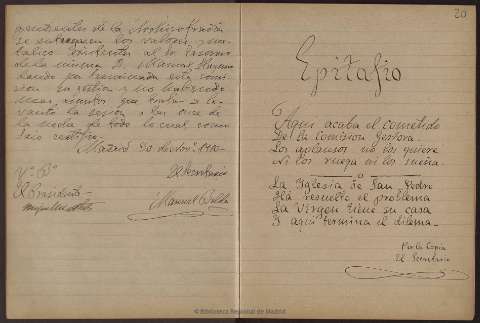 pendientes de la Archicofradía
se entreguen los valores y me-
talico existentes al Sr Tesorero
de la misma D.
dando por terminada esta comi-
sion su gestion y no habiendo
mas asuntos que tratar se le-
vantó la sesion a las once de
la noche de todo lo cual como
Srio certifico.
Madrid 20 de Nov. 1910.
Vº Bº
El Secretario
El Presidente
Manuel
20
Epitafio
Aqui acaba el cometido
De la Comision Gestora
Los aplausos no los quiere
Ni los ruega ni los sueña.
La Yglesia de San Pedro
Ha resuelto el problema
La Virgen tiene su casa
Y aqui termina el dilema.
Por la Copia
El Secretario
© Biblioteca Regional de Madrid